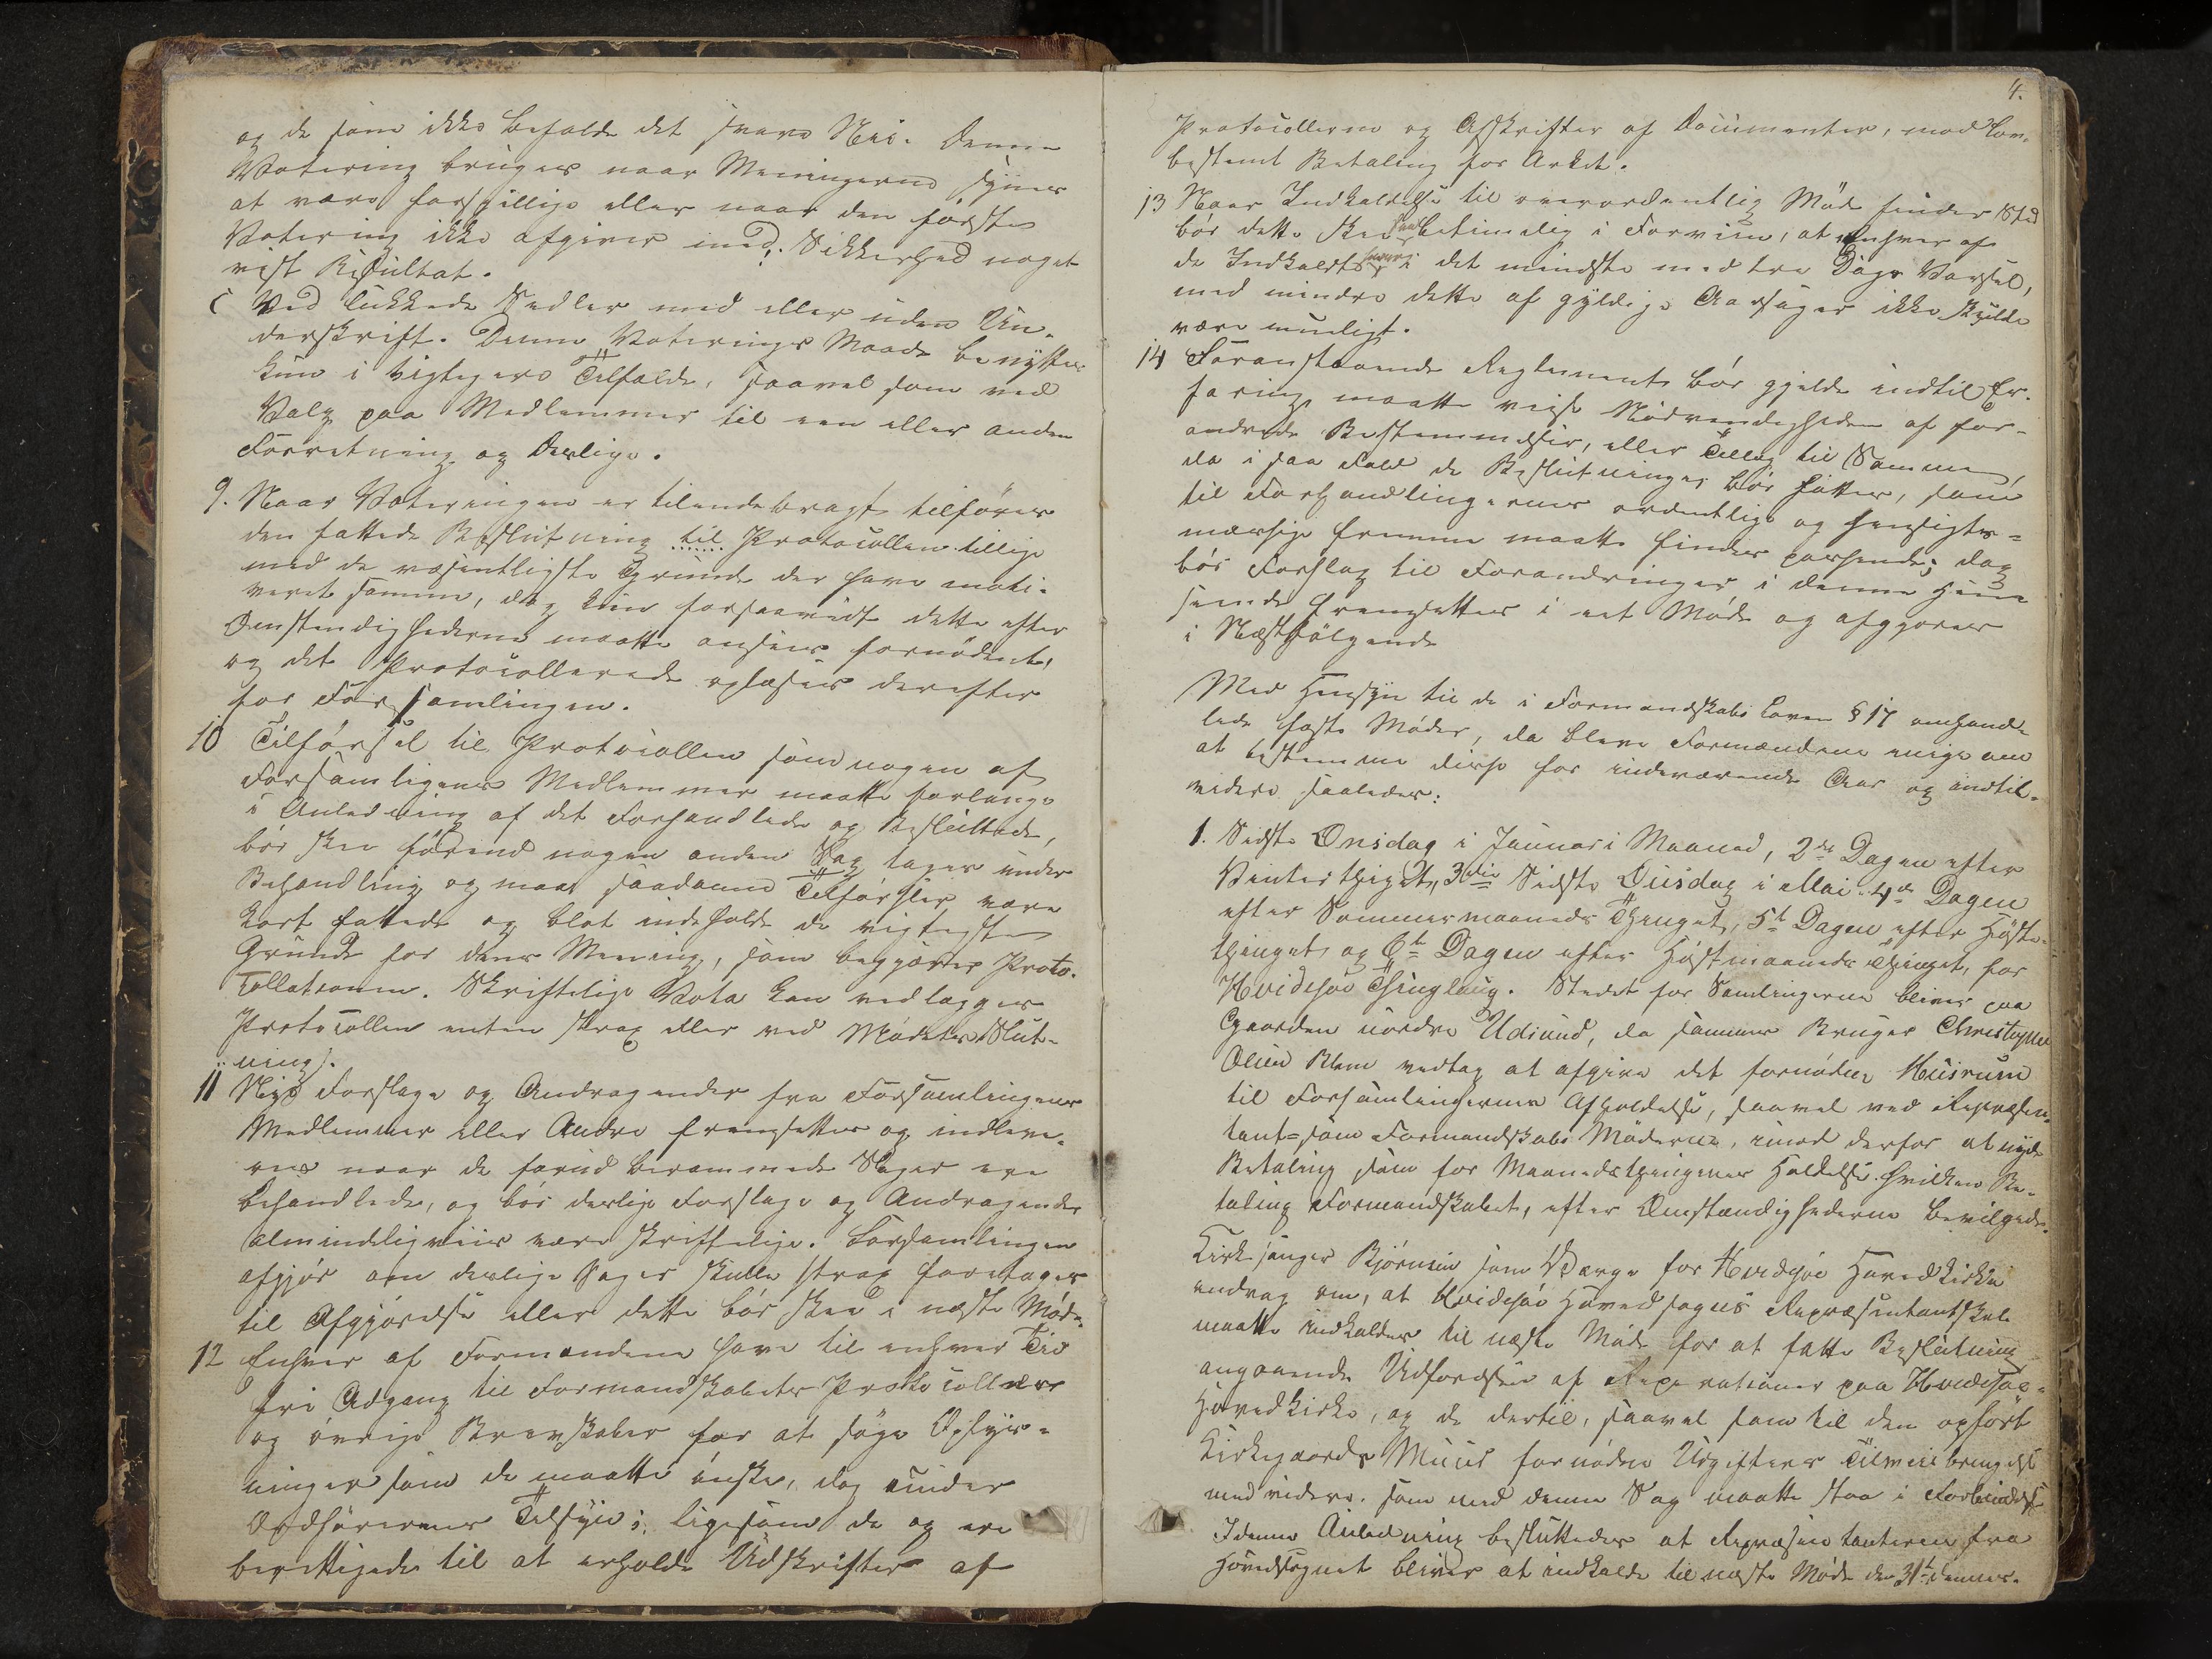 og de som ikke befalde det svare Nei. Denne
Votering bruges naar Meningerne synes
at være forskjillige eller naar den første
Votering ikke afgiver med Sikkerhed noget
vist Resultat.
c Ved lukkede Sedler med eller uden Un-
derskrift. Denne Voterings Maade benyttes
kun i vigtigere Tilfælde, saavel som ved
Valg paa Medlemmer til een eller anden
Forretning og Deslige.
9. Naar Voteringen er tilendebragt tilføres
den fattede Beslutning til Protocollen tillige
med de væsentligste Grunde der have moti-
veret samme, dog kun forsaavidt dette efter
Omstendighederne maatte ansees fornødent,
og det Protocollerede oplæses derefter
for Forsamlingen.
10 Tilførsel til Protocollen som nogen af
Forsamligens Medlemmer maatte forlange
i Anledning af det Forhandlede og Besluttede,
bør skee førend nogen anden Sag tages under
Behandling og maae saadanne Tilførsler være
kort fattede og blot indeholde de vigtigste
Grunde for dens Mening, som begjærer Proto-
collationen. Skriftelige Vota kan vedlægges
Protocollen enten strax eller ved Mødetes Slut-
ning.
11 Nye Forslage og Andragender fra Forsamlingens
Medlemmer eller Andre fremsettes og indleve-
res naar de forud berammede Sager ere
behandlede, og bør deslige Forslage og Andragender
almindeligviis være skriftelige. Forsamlingen
afgjør om deslige Sager skulle strax foretages
til Afgjørelse eller dette bør skee i næste Møde.
12 Enhver af Formændene have til enhver Tid
fri Adgang til Formandskabets Protocoller
og øvrige Brevskaber for at søge Oplys-
ninger som de maatte ønske, dog under
Ordførerens Tilsyn; ligesom de og ere
berettigede til at erholde Udskrifter af
4.
Protocollerne og Afskrifter af Documenter, mod Lov-
bestemt Betaling for Arket.
13 Naar Indkaldelse til overordentlig Møde finder Sted
bør dette skee saa betimelig i Forveien, at enhver af
de Indkaldte haver i det mindste med tre Dages Varsel,
med mindre dette af gyldige Aarsager ikke skulde
være mueligt.
14 Foranstaaende Reglement bør gjelde indtil Er-
faring maatte veise Nødvendigheden af for-
andrede Bestemmelser, eller Tillæg til Samme,
da i saa Fald de Beslutninger bør fattes, som
til Forhandlingernes ordentlige og hensigts-
mæssige Fremme maatte findes passende; dog
bør Forslag til Forandringer i denne Hen-
seende fremsettes i eet Møde og afgjøres
i Næstfølgende
Med Hensyn til de i Formandskabs Loven § 17 omhand-
lede faste Møder, da bleve Formændene enige om
at bestemme disse for indeværende Aar og indtil-
videre saaledes:
1. Sidste Onsdag i Januari Maaned, 2de Dagen efter
Vinterthinget, 3die Sidste Onsdag i Mai 4de Dagen
efter Sommermaaneds Thinget, 5te Dagen efter Høste-
thinget, og 6te Dagen efter Høstmaaneds Thinget, for
Hvidesøe Thinglaug. Stedet for Samlingerne bliver paa
Gaarden nordre Udsund, da sammes Bruger Christopher
Olsen Blom vedtog at afgive det fornødne Huusrum
til Forsamlingernes Afholdelse, saavel ved Repræsen-
tant- som Formandskabs Møderne, imod derfor at nyde
Betaling som for Maanedsthingenes Holdelse hvilken Be-
taling Formandskabet, efter Omstændighederne bevilgede.
Kirkesanger Bjørnsen som Værge for Hvidesøe Hovedkirke
androg om, at Hvidesøe Hovedsogns Repræsentantskab
maatte indkaldes til næste Møde for at fatte Beslutning
angaaende Udførelsen af Reparationer paa Hvidesøe-
Hovedkirke, og de dertil, saavel som til den opført
Kirkegaards Muur fornødne Udgifters Tilveiebringelse
med videre, som med denne Sag maatte staa i Forbindelse
I denne Anledning besluttedes at Repræsentanterne fra
Hovedsognet bliver at indkalde til næste Møde den 31te dennes.